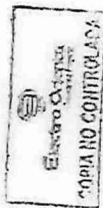 Electro Oriente
COPIA NO CONTROLADA